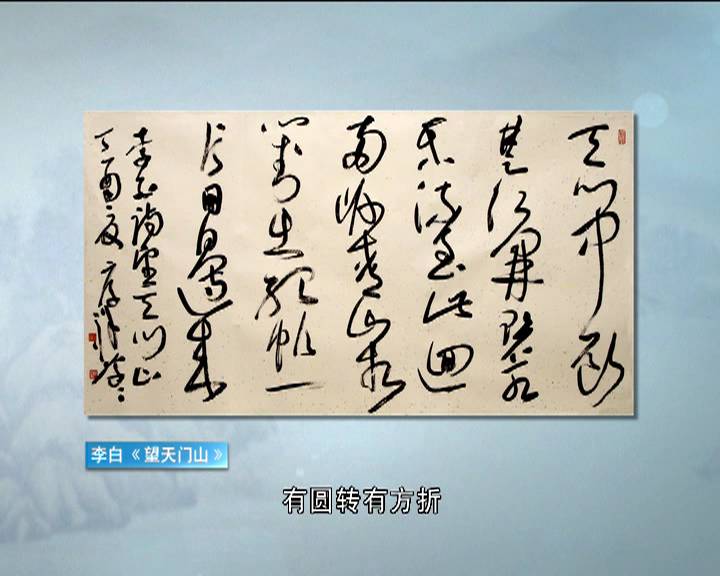 天门中断
楚江開碧水
东流至此迴
两岸青山相
對出孤帆一
片日邊来
李白詩望天门山
丁酉夏
李白《望天门山》
有圆转有方折